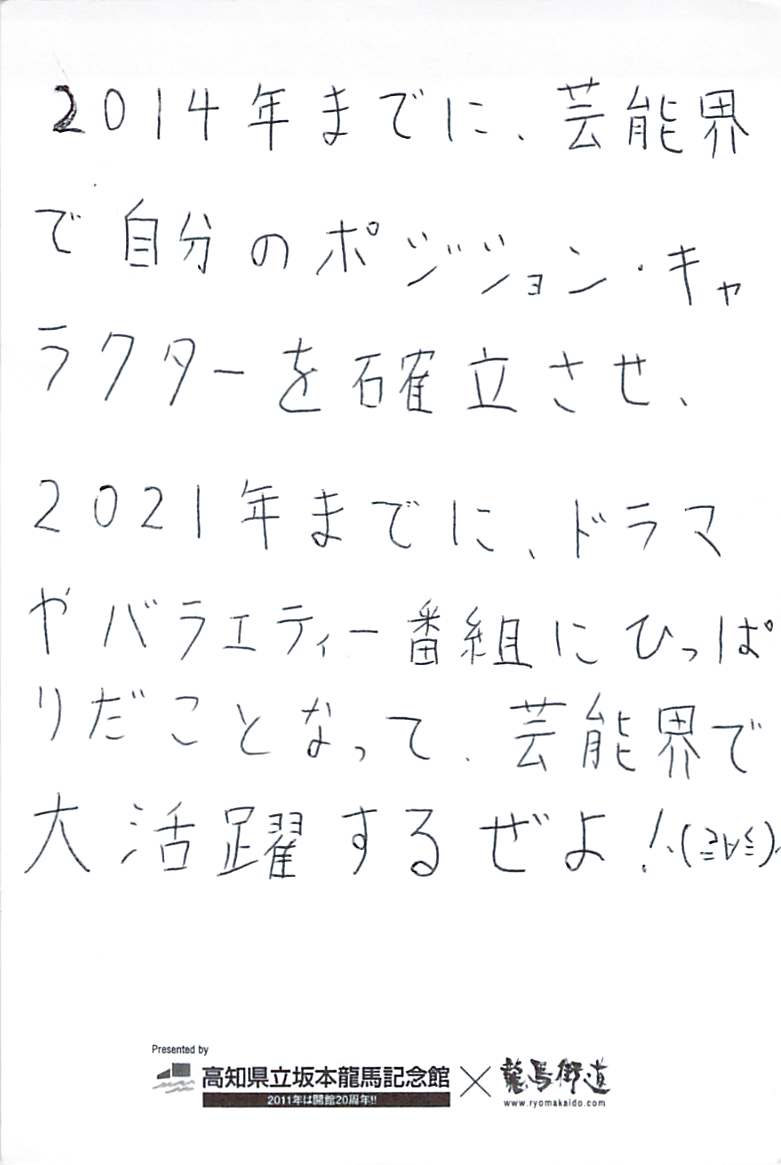 2014年までに、芸能界
で自分のポジジョン・キャ
ラクターを確立させ、
2021年までに、ドラマ
やバラエティー番組にひっぱ
りだことなって、芸能界で
大活躍するぜよ!(≧∀≦)
Presented by
高知県立坂本龍馬記念館×龍馬街道
2011年は開館20周年!!
www.ryomakaido.com